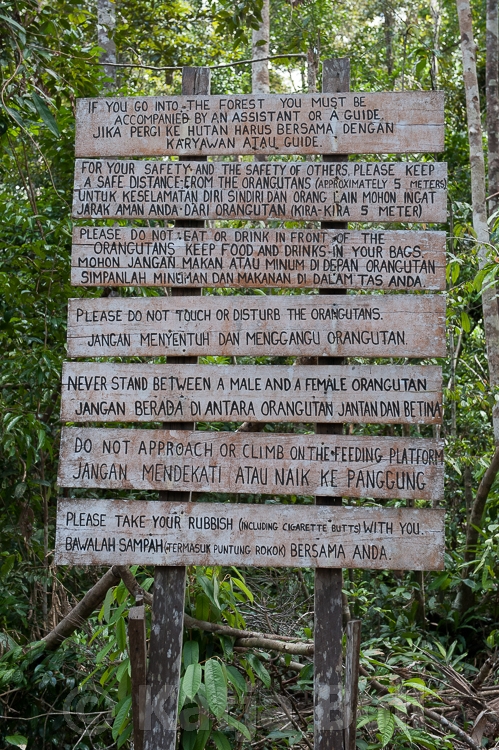 IF YOU GO INTO THE FOREST YOU MUST BE
ACCOMPANIED BY AN ASSISTANT OR A GUIDE.
JIKA PERGI KE HUTAN HARUS BERSAMA DENGAN
KARYAWAN ATAU GUIDE.
FOR YOUR SAFETY AND THE SAFETY OF OTHERS, PLEASE KEEP
A SAFE DISTANCE FROM THE ORANGUTANS (APPROXIMATELY 5 METERS)
UNTUK KESELAMATAN DIRI SINDIRI DAN ORANG LAIN MOHON INGAT
JARAK AMAN ANDA DARI ORANGUTAN (KIRA-KIRA 5 METER)
PLEASE DO NOT EAT OR DRINK IN FRONT OF THE
ORANGUTANS KEEP FOOD AND DRINKS IN YOUR BAGS.
MOHON JANGAN MAKAN ATAU MINUM DI DEPAN ORANGUTAN
SIMPANLAH MINUMAN DAN MAKANAN DI DALAM TAS ANDA.
PLEASE DO NOT TOUCH OR DISTURB THE ORANGUTANS.
JANGAN MENYENTUH DAN MENGGANGU ORANGUTAN.
NEVER STAND BETWEEN A MALE AND A FEMALE ORANGUTAN
JANGAN BERADA DI ANTARA ORANGUTAN JANTAN DAN BETINA
DO NOT APPROACH OR CLIMB ON THE FEEDING PLATFORM
JANGAN MENDEKATI ATAU NAIK KE PANGGUNG
PLEASE TAKE YOUR RUBBISH (INCLUDING CIGARETTE BUTTS) WITH YOU.
BAWALAH SAMPAH (TERMASUK PUNTUNG ROKOK) BERSAMA ANDA.